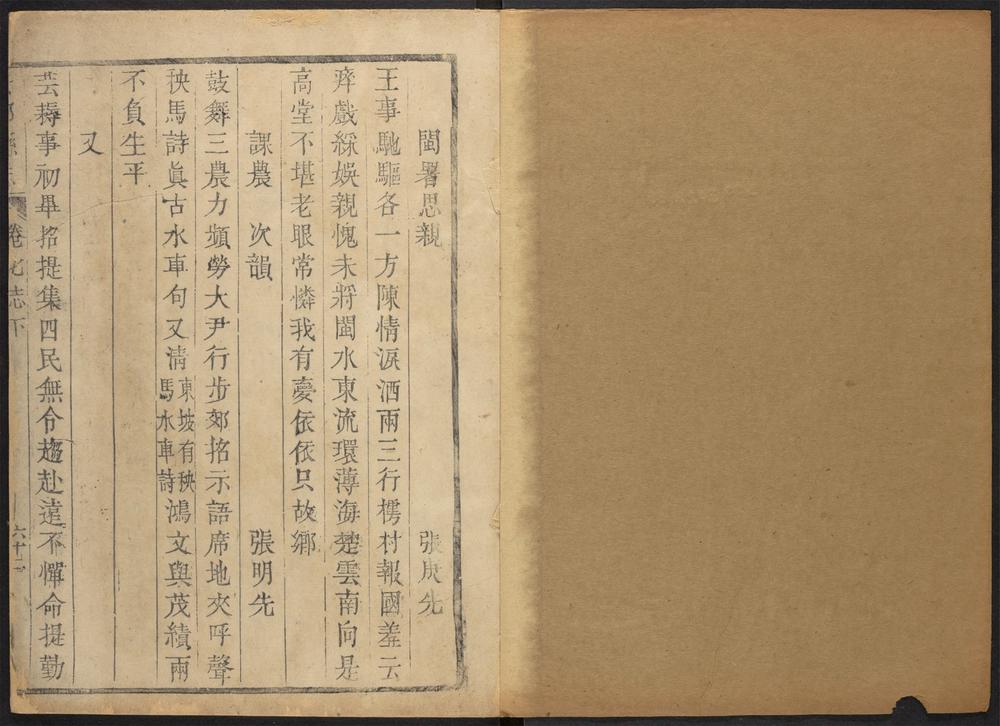 閩署思親 張
王事馳驅各一方陳情淚洒兩三行樗材報國羞云
瘁戲綵娛親愧未將閩水東流環薄海楚雲南向是
高堂不堪老眼常憐我有夢依依只故鄉
課農 次韻 張明先
鼓舞三農力頻勞大尹行步郊招示語席地夾呼聲
秧馬詩眞古水車句又清東坡有秧馬水車詩鴻文與茂績兩
不負生平
又
芸耨事初畢招提集四民無令趨赴遠不憚命提勤
卷 志下
六十二